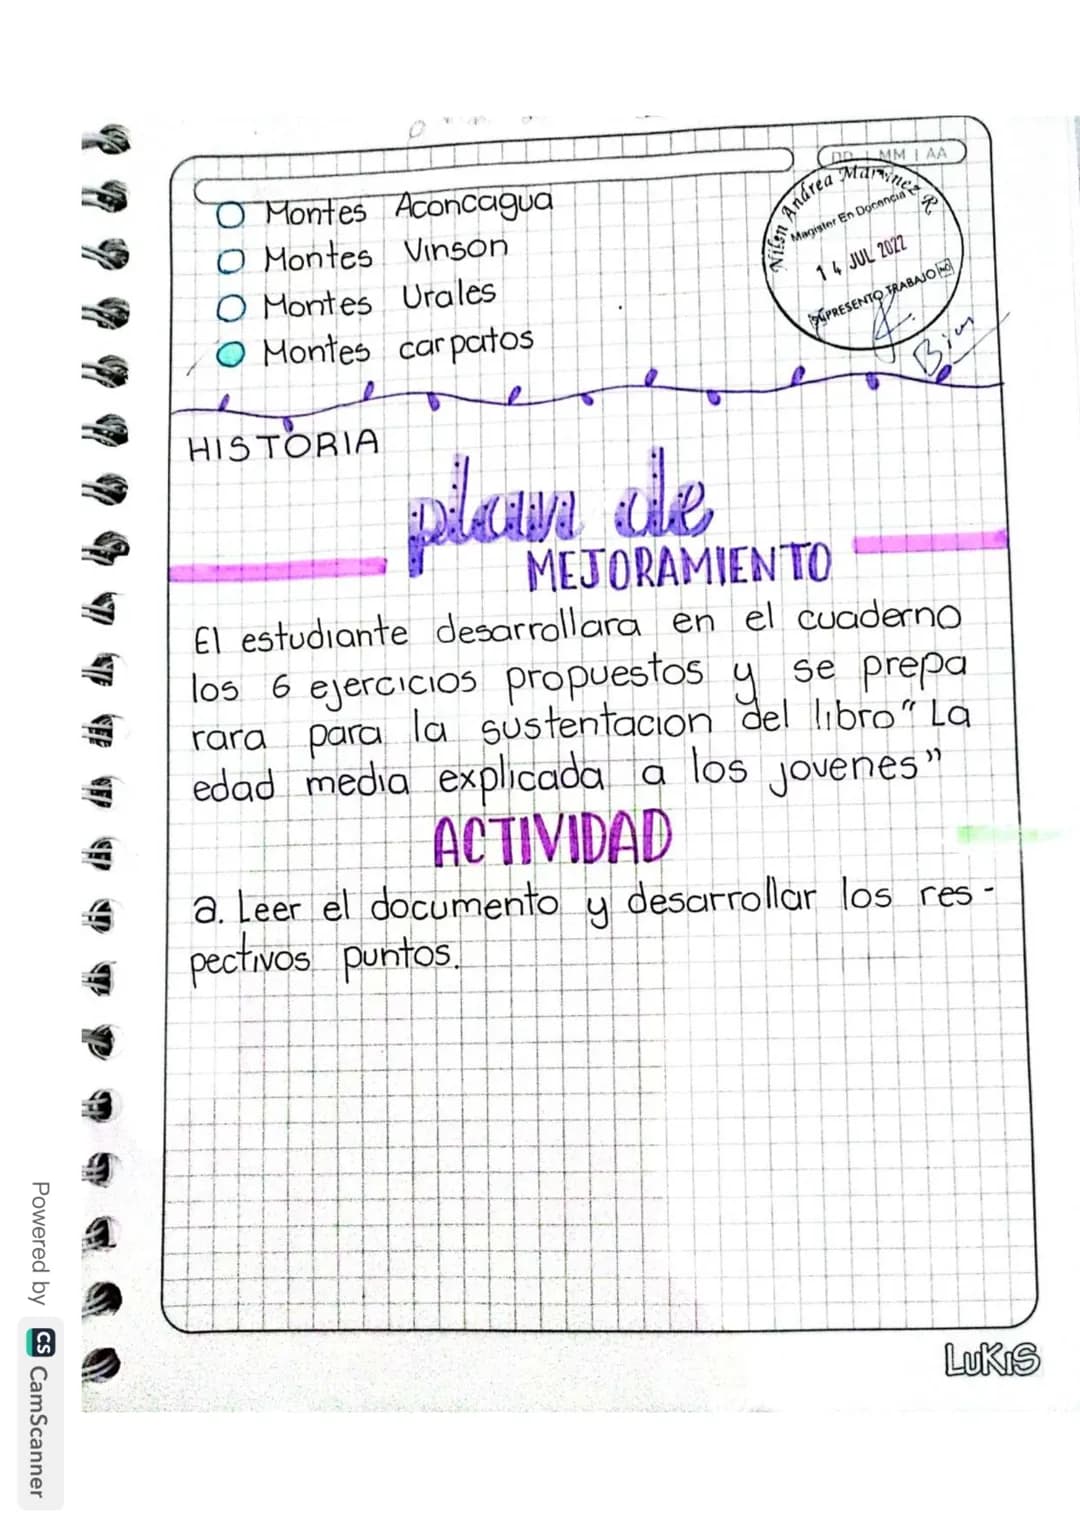 DD | MM | AA
Montes Aconcagua
Montes Vinson
Montes Urales
Montes carpatos
Nilsen Andrea Martinez R.
Magister En Docencia
14 JUL 2022
SI PRESENTO TRABAJO NO
Bien
HISTORIA
plan de
MEJORAMIENTO
El estudiante desarrollara en el cuaderno
los 6 ejercicios propuestos y se prepa
rara para la sustentacion del libro "La
edad media explicada a los jovenes"
ACTIVIDAD
a. Leer el documento y desarrollar los res-
pectivos puntos.
LUKIS
Powered by CS CamScanner